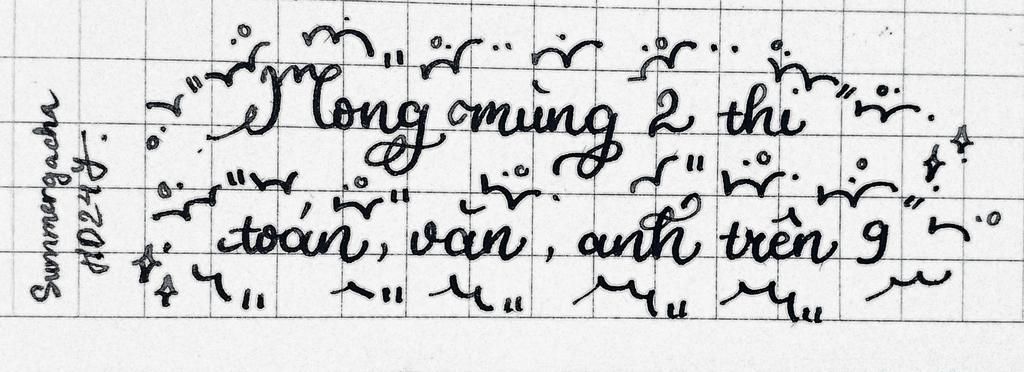 Mong mùng 2 thi
toán, văn, anh trên 9
Summergacha
HD24y.